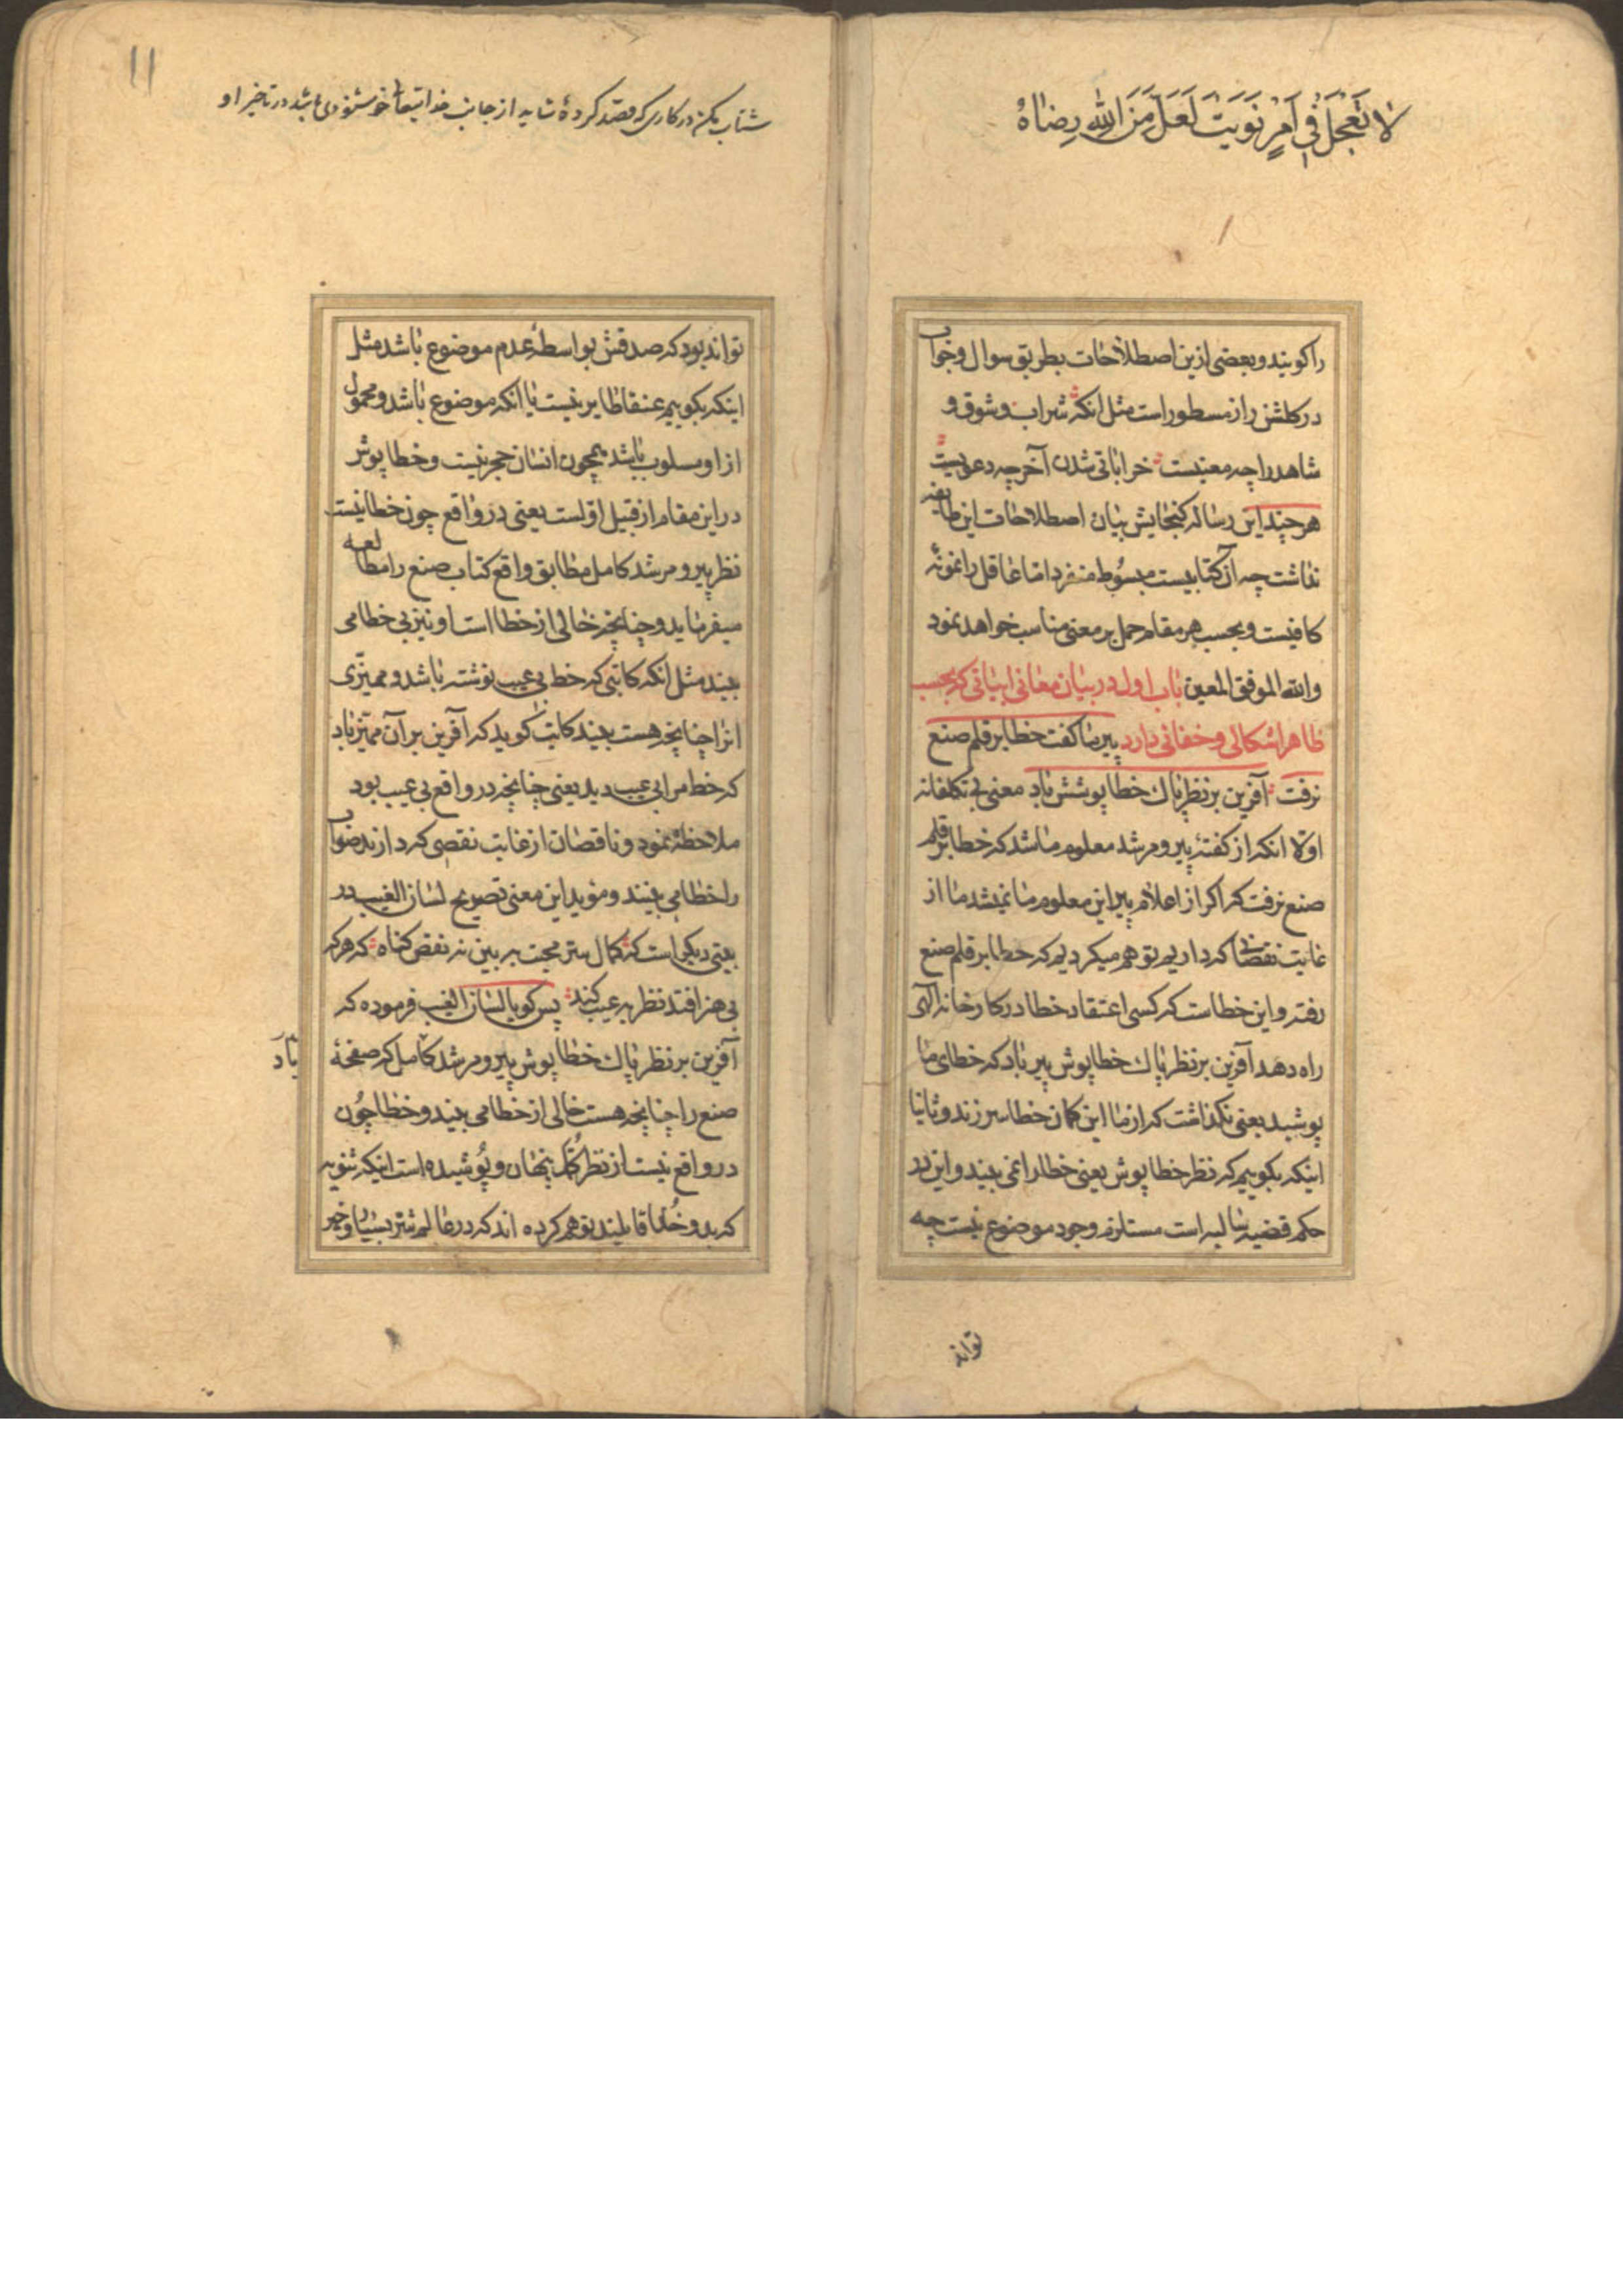 لا تَعْجَلْ فِی اَمْرٍ نَوَیْتَ لَعَلَّ مِنَ اللهِ رِضاهُ
را کویند و بعضی ازین اصطلاحات بطریق سوال و جواب
در کلشن راز مسطور است مثل انکه شراب و شوق و
شاهد را چه معنیست خراباتی شدن آخر چه دعویست
هر چند این رساله کنجایش بیان اصطلاحات این طایفه
نداشت چه آن کتابیست مبسوط منفرد اما عاقل را نمونهٔ
کافیست و بحسب هر مقام حمل بر معنی مناسب خواهد نمود
والله الموفق المعین باب اول در بیان معانی ابیاتی که بحسب
ظاهر اشکالی و خفائی دارد پیر ما کفت خطا بر قلم صنع
نرفت آفرین بر نظر پاك خطا پوشش باد معنی بی تکلفانه
اولا انکه از کفتهٔ پیر و مرشد معلوم ما شد که خطا بر قلم
صنع نرفت که اکر از اعلام پیر این معلوم ما نمیشد ما از
غایت نقصانی که داریم توهم میکردیم که خطا بر قلم صنع
رفته و این خطاست که کسی اعتقاد خطا در کارخانه الهی
راه دهد آفرین بر نظر پاك خطا پوش پیر باد که خطای ما
پوشید یعنی نکذاشت که از ما این کمان خطا سر زند و ثانیا
اینکه بکوییم که نظر خطا پوش یعنی خطا را نمی بیند و این در
حکم قضیه سالبه است مستلزم وجود موضوع نیست چه
تواند
۱۱
شتاب مکن در کاری که قصد کردهٔ شاید از جانب خدایتعالی خوشنودی باشد در تاخیر او
تواند بود که صدقش بواسطهٔ عدم موضوع باشد مثل
اینکه بکوییم عنقا طایر نیست یا انکه موضوع باشد و محمول
از او مسلوب باشد همچون انسان حجر نیست و خطا پوش
در این مقام از قبیل اولست یعنی در واقع چون خطا نیست
نظر پیر و مرشد کامل مطابق واقع کتاب صنع را مطالعه
میفرماید و چنانچه خالی از خطا است او نیز بی خطا می
بیند مثل انکه کاتبی که خط بی عیب نوشته باشد و ممیّزی
انرا چنانچه هست بیند کاتب کوید که آفرین بر آن ممیّز باد
که خط مرا بی عیب دید یعنی چنانچه در واقع بی عیب بود
ملاحظه نمود و ناقصان از غایت نقصی که دارند صواب
را خطا می بینند و مؤید این معنی تصریح لسان الغیب در
بیتی دیکر است که کمال ستر محبت به بین نه نقص کناه که هر که
بی هنر افتد نظر به عیب کند پس کویا لسان الغیب فرموده که
آفرین بر نظر پاك خطا پوش پیر و مرشد کامل که صفحهٔ
باد
صنع را چنانچه هست خالی از خطا می بیند و خطا چون
در واقع نیست از نظر کمّل پنهان و پوشیده است اینکه ثنویه
که بدو خدا قایلند توهم کرده اند که در عالم شر بسیار و خیر